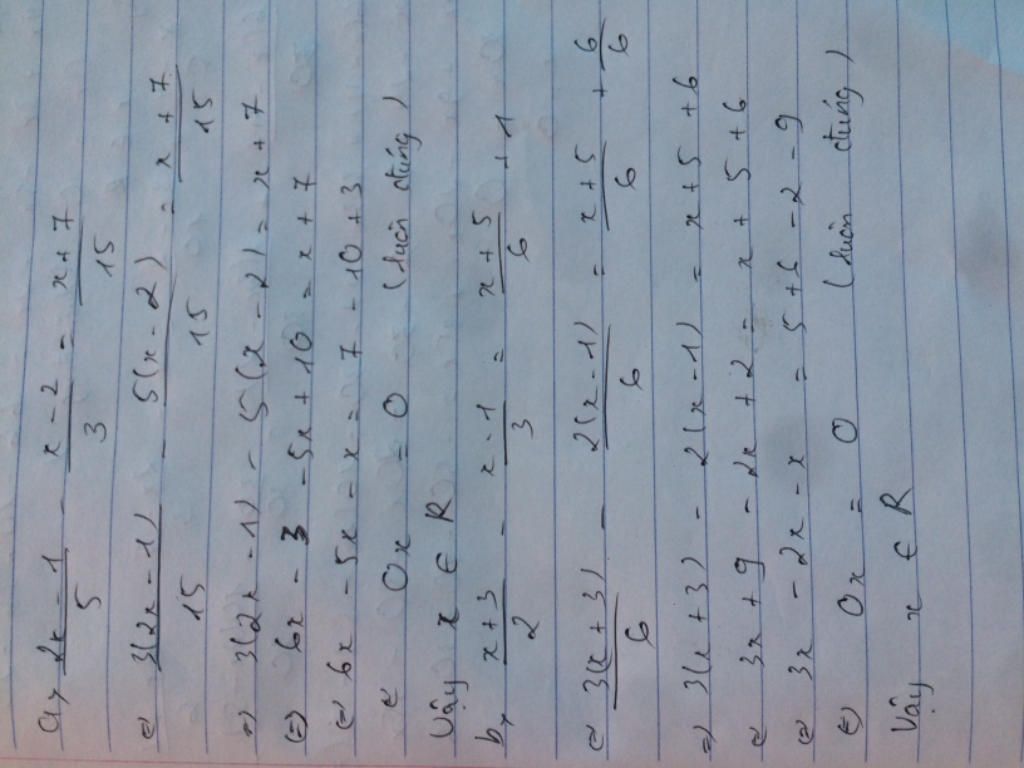 a, 2x - 1 / 5 - x - 2 / 3 = x + 7 / 15
⇔ 3(2x - 1) / 15 - 5(x - 2) / 15 = x + 7 / 15
⇒ 3(2x - 1) - 5(x - 2) = x + 7
⇔ 6x - 3 - 5x + 10 = x + 7
⇔ 6x - 5x - x = 7 - 10 + 3
⇔ 0x = 0 (luôn đúng)
Vậy x ∈ R
b, x + 3 / 2 - x - 1 / 3 = x + 5 / 6 + 1
⇔ 3(x + 3) / 6 - 2(x - 1) / 6 = x + 5 / 6 + 6 / 6
⇒ 3(x + 3) - 2(x - 1) = x + 5 + 6
⇔ 3x + 9 - 2x + 2 = x + 5 + 6
⇔ 3x - 2x - x = 5 + 6 - 2 - 9
⇔ 0x = 0 (luôn đúng)
Vậy x ∈ R